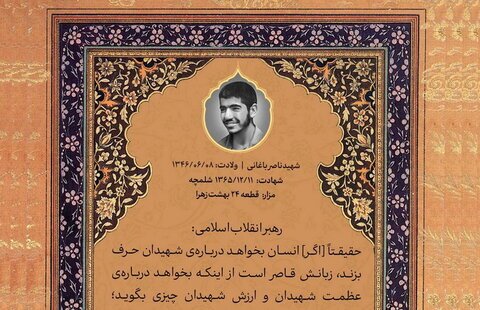 شهید ناصر باغانی | ولادت: ۱۳۴۶/۰۶/۰۸
شهادت: ۱۳۶۵/۱۲/۱۱ شلمچه
مزار: قطعه ۲۴ بهشت‌زهرا
رهبر انقلاب اسلامی:
حقیقتاً [اگر] انسان بخواهد درباره‌ی شهیدان حرف
بزند، زبانش قاصر است از اینکه بخواهد درباره‌ی
عظمت شهیدان و ارزش شهیدان چیزی بگوید؛